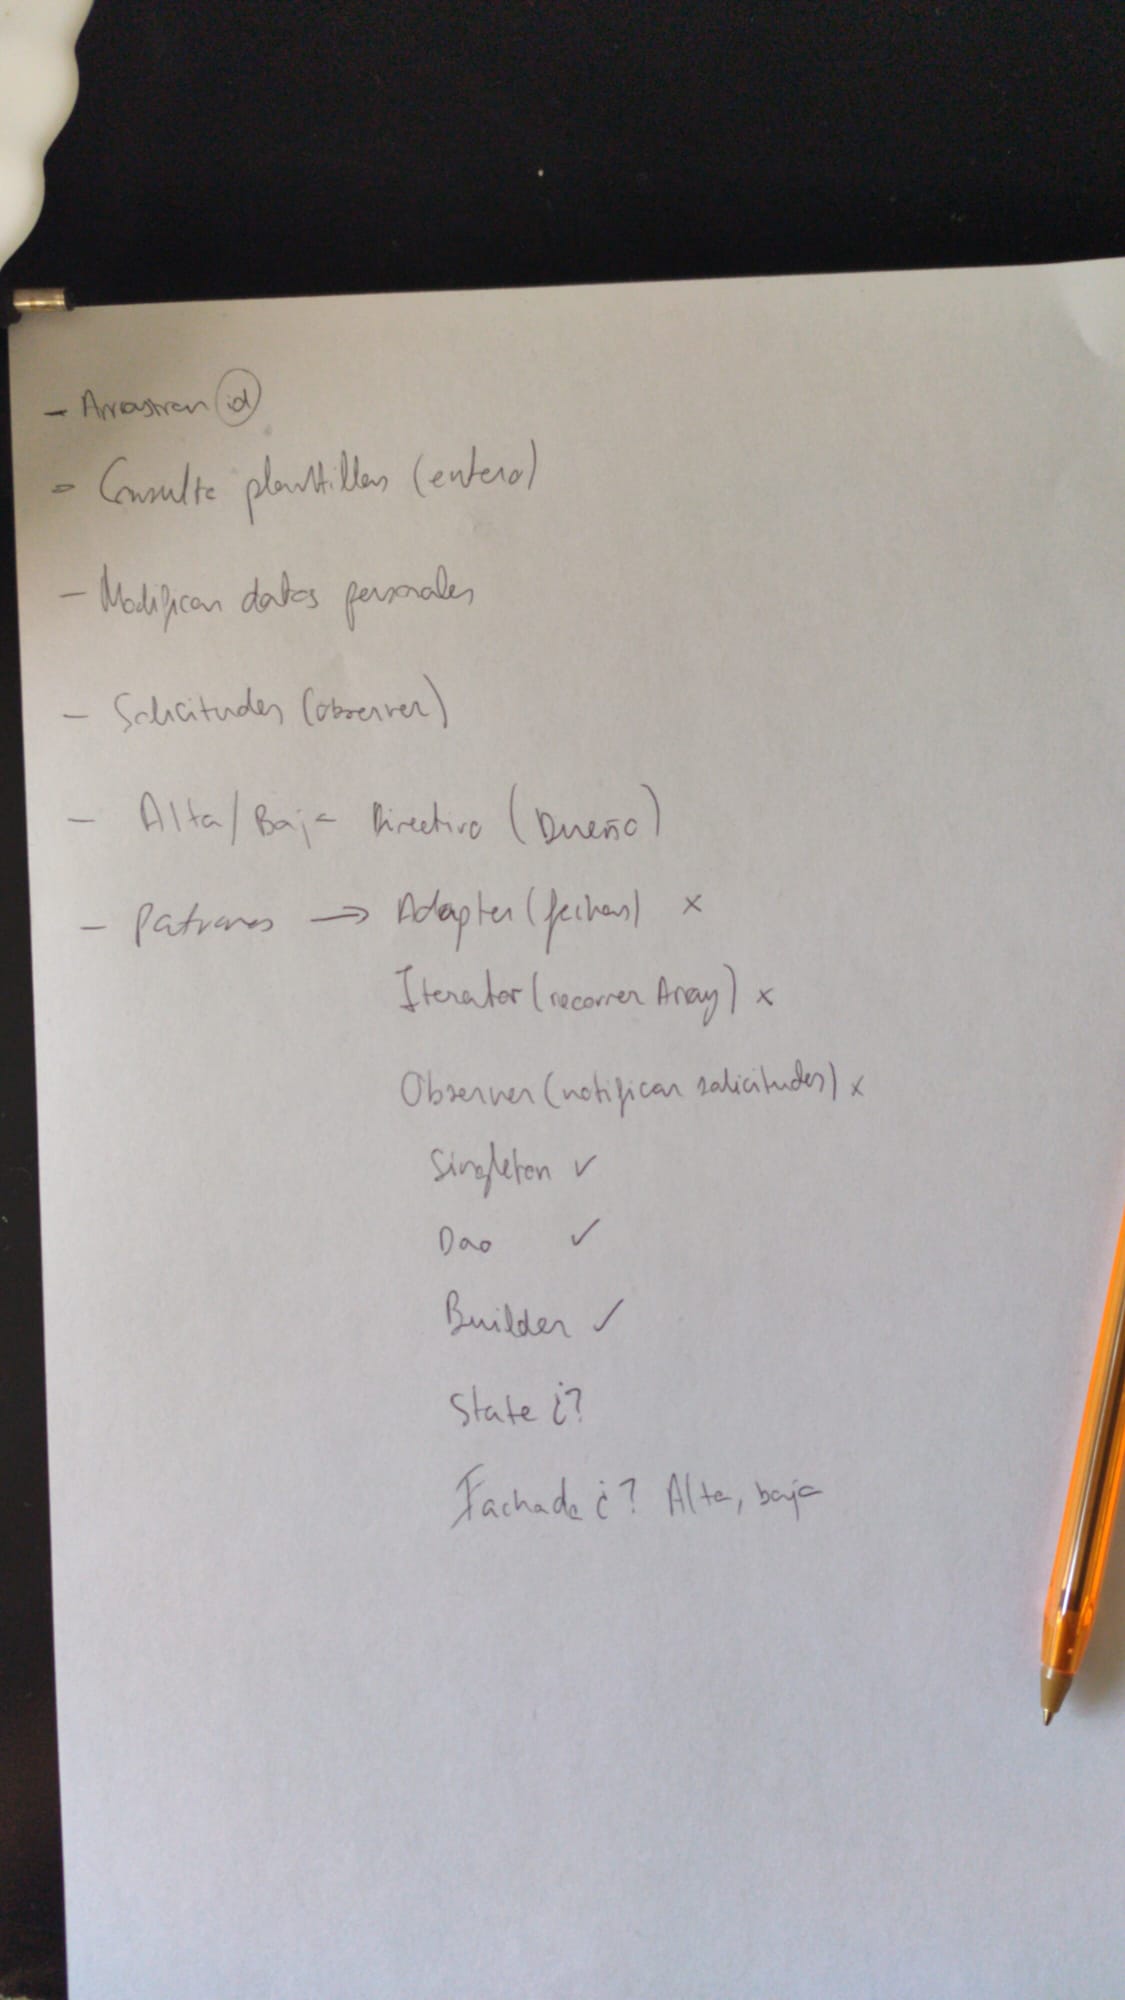 - Arrastrar id
- Consulta plantillas (entero)
- Modificar datos personales
- Solicitudes (observer)
- Alta/Baja Directivo (Dueño)
- Patrones → Adapter (fechas) x
Iterator (recorrer Array) x
Observer (notificar solicitudes) x
Singleton ✓
Dao ✓
Builder ✓
State ¿?
Fachada ¿? Alta, baja